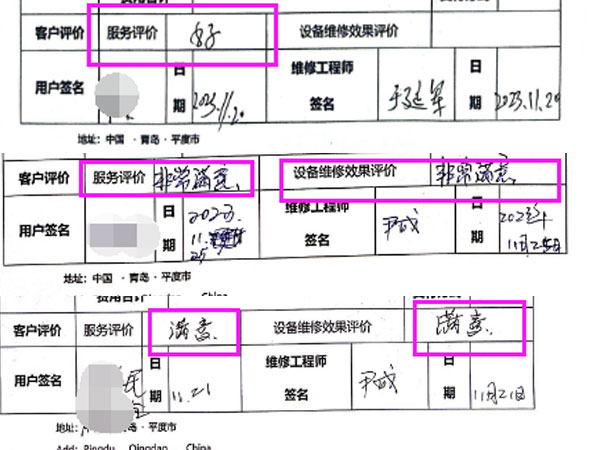 客户评价 服务评价 好 设备维修效果评价
用户签名 日期 2023.11.20 维修工程师签名 于廷军 日期 2023.11.20
地址：中国 · 青岛 · 平度市
客户评价 服务评价 非常满意、 设备维修效果评价 非常满意、
用户签名 日期 2023. 11. 25 维修工程师签名 尹成 日期 2023年 11月25日
地址：中国 · 青岛 · 平度市
费用合计 China
客户评价 服务评价 满意、 设备维修效果评价 满意、
用户签名 日期 11.21 维修工程师签名 尹成 日期 11月21日
地址： 青岛 · 平度市
Add: Pingdu Qingdao China